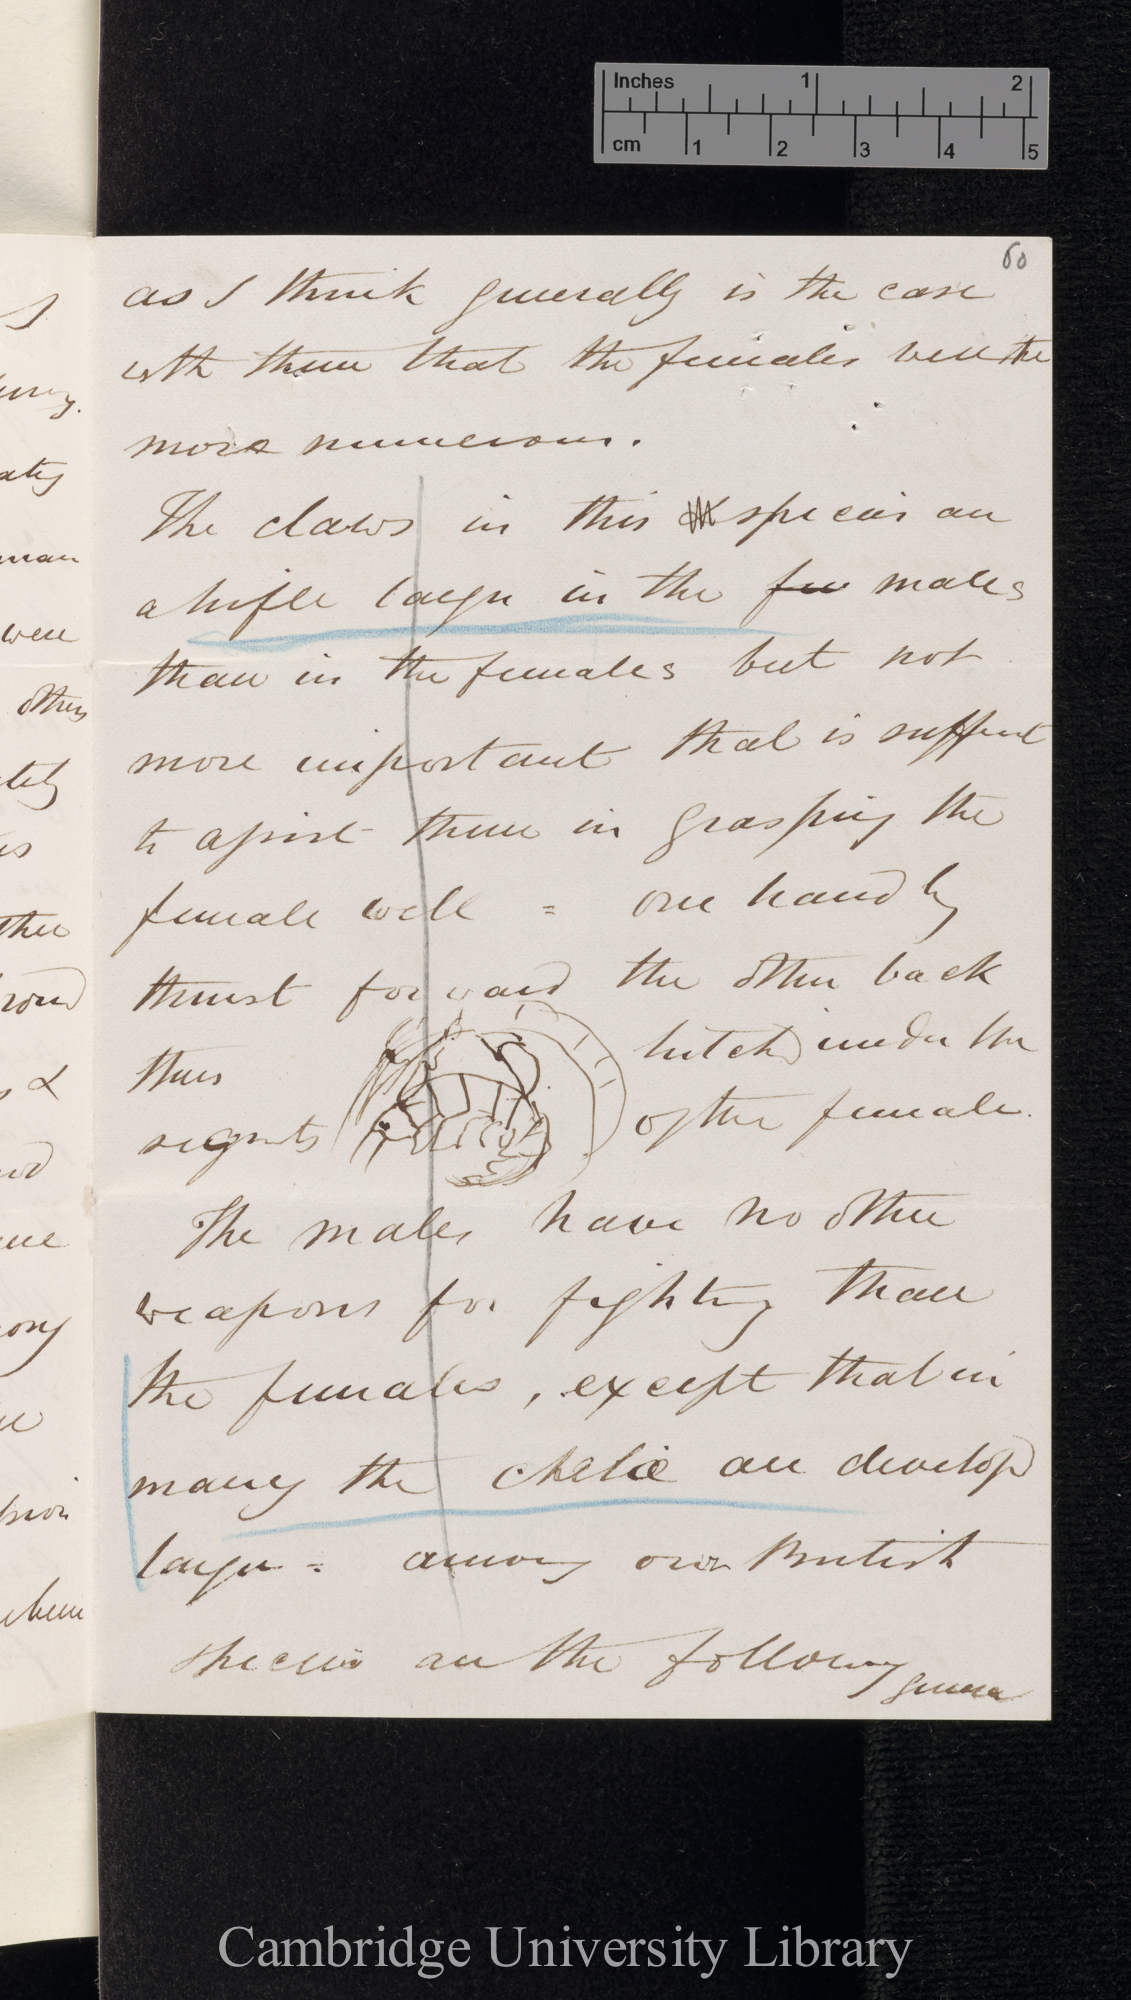 Inches 1 2
cm 1 2 3 4 5
60
as I think generally is the case
with them that the females were the
more numerous.
The claws in this species are
a trifle larger in the few males
than in the females but not
more important that is sufficient
to assist them in grasping the
female well = one hand by
thrust forward the other back
thus hitched under the
segmts of the female.
The males have no other
weapons for fighting than
the females, except that in
many the chelæ are develop
larger = among our British
species are the following
genera
ating
man
were
others
ately
other
round
s &
when
Cambridge University Library